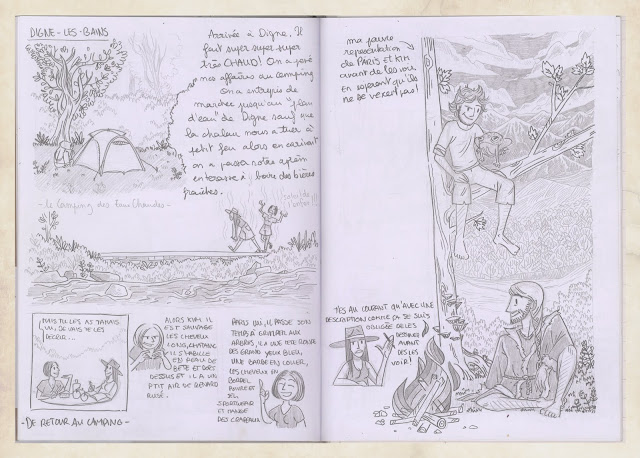 DIGNE-LES-BAINS
Arrivée à Digne, Il
fait super super super
très CHAUD! On a posé
nos affaires au camping
On a entrepris de
marcher jusqu'au "plan
d'eau" de Digne sauf que
la chaleur nous a tuer à
petit feu alors en arrivant
on a passé notre aprèm
en terrasse à boire des bières
fraîches.
- Le Camping des Eaux Chaudes -
soleil de
l'enfer!!!
MAIS TU LES AS JAMAIS
VU, JE VAIS TE LES
DÉCRIRE...
ALORS KIM IL
EST SAUVAGE
LES CHEVEUX
LONG, CHATAING
IL S'HABILLE
EN PEAU DE
BÊTE ET DORS
DESSUS ET IL A UN
P'TIT AIR DE RENARD
RUSÉ.
PARIS LUI, IL PASSE SON
TEMPS À GRIMPER AUX
ARBRES, IL A UNE TÊTE RONDE
DES GRAND YEUX BLEU,
UNE BARBE EN COLLIER,
LES CHEVEUX EN
BORDEL
POIVRE ET
SEL
SPORTIF
ET MANGE
DES CRAPEAUX
- DE RETOUR AU CAMPING -
ma pauvre
représentation
de PARIS et KIM
avant de les voir
En espérant qu'ils
ne se vexent pas!
T'ES AU COURANT QU'AVEC UNE
DESCRIPTION COMME ÇA JE SUIS
OBLIGÉE DE LES
DESSINER
AVANT
DE LES
VOIR!